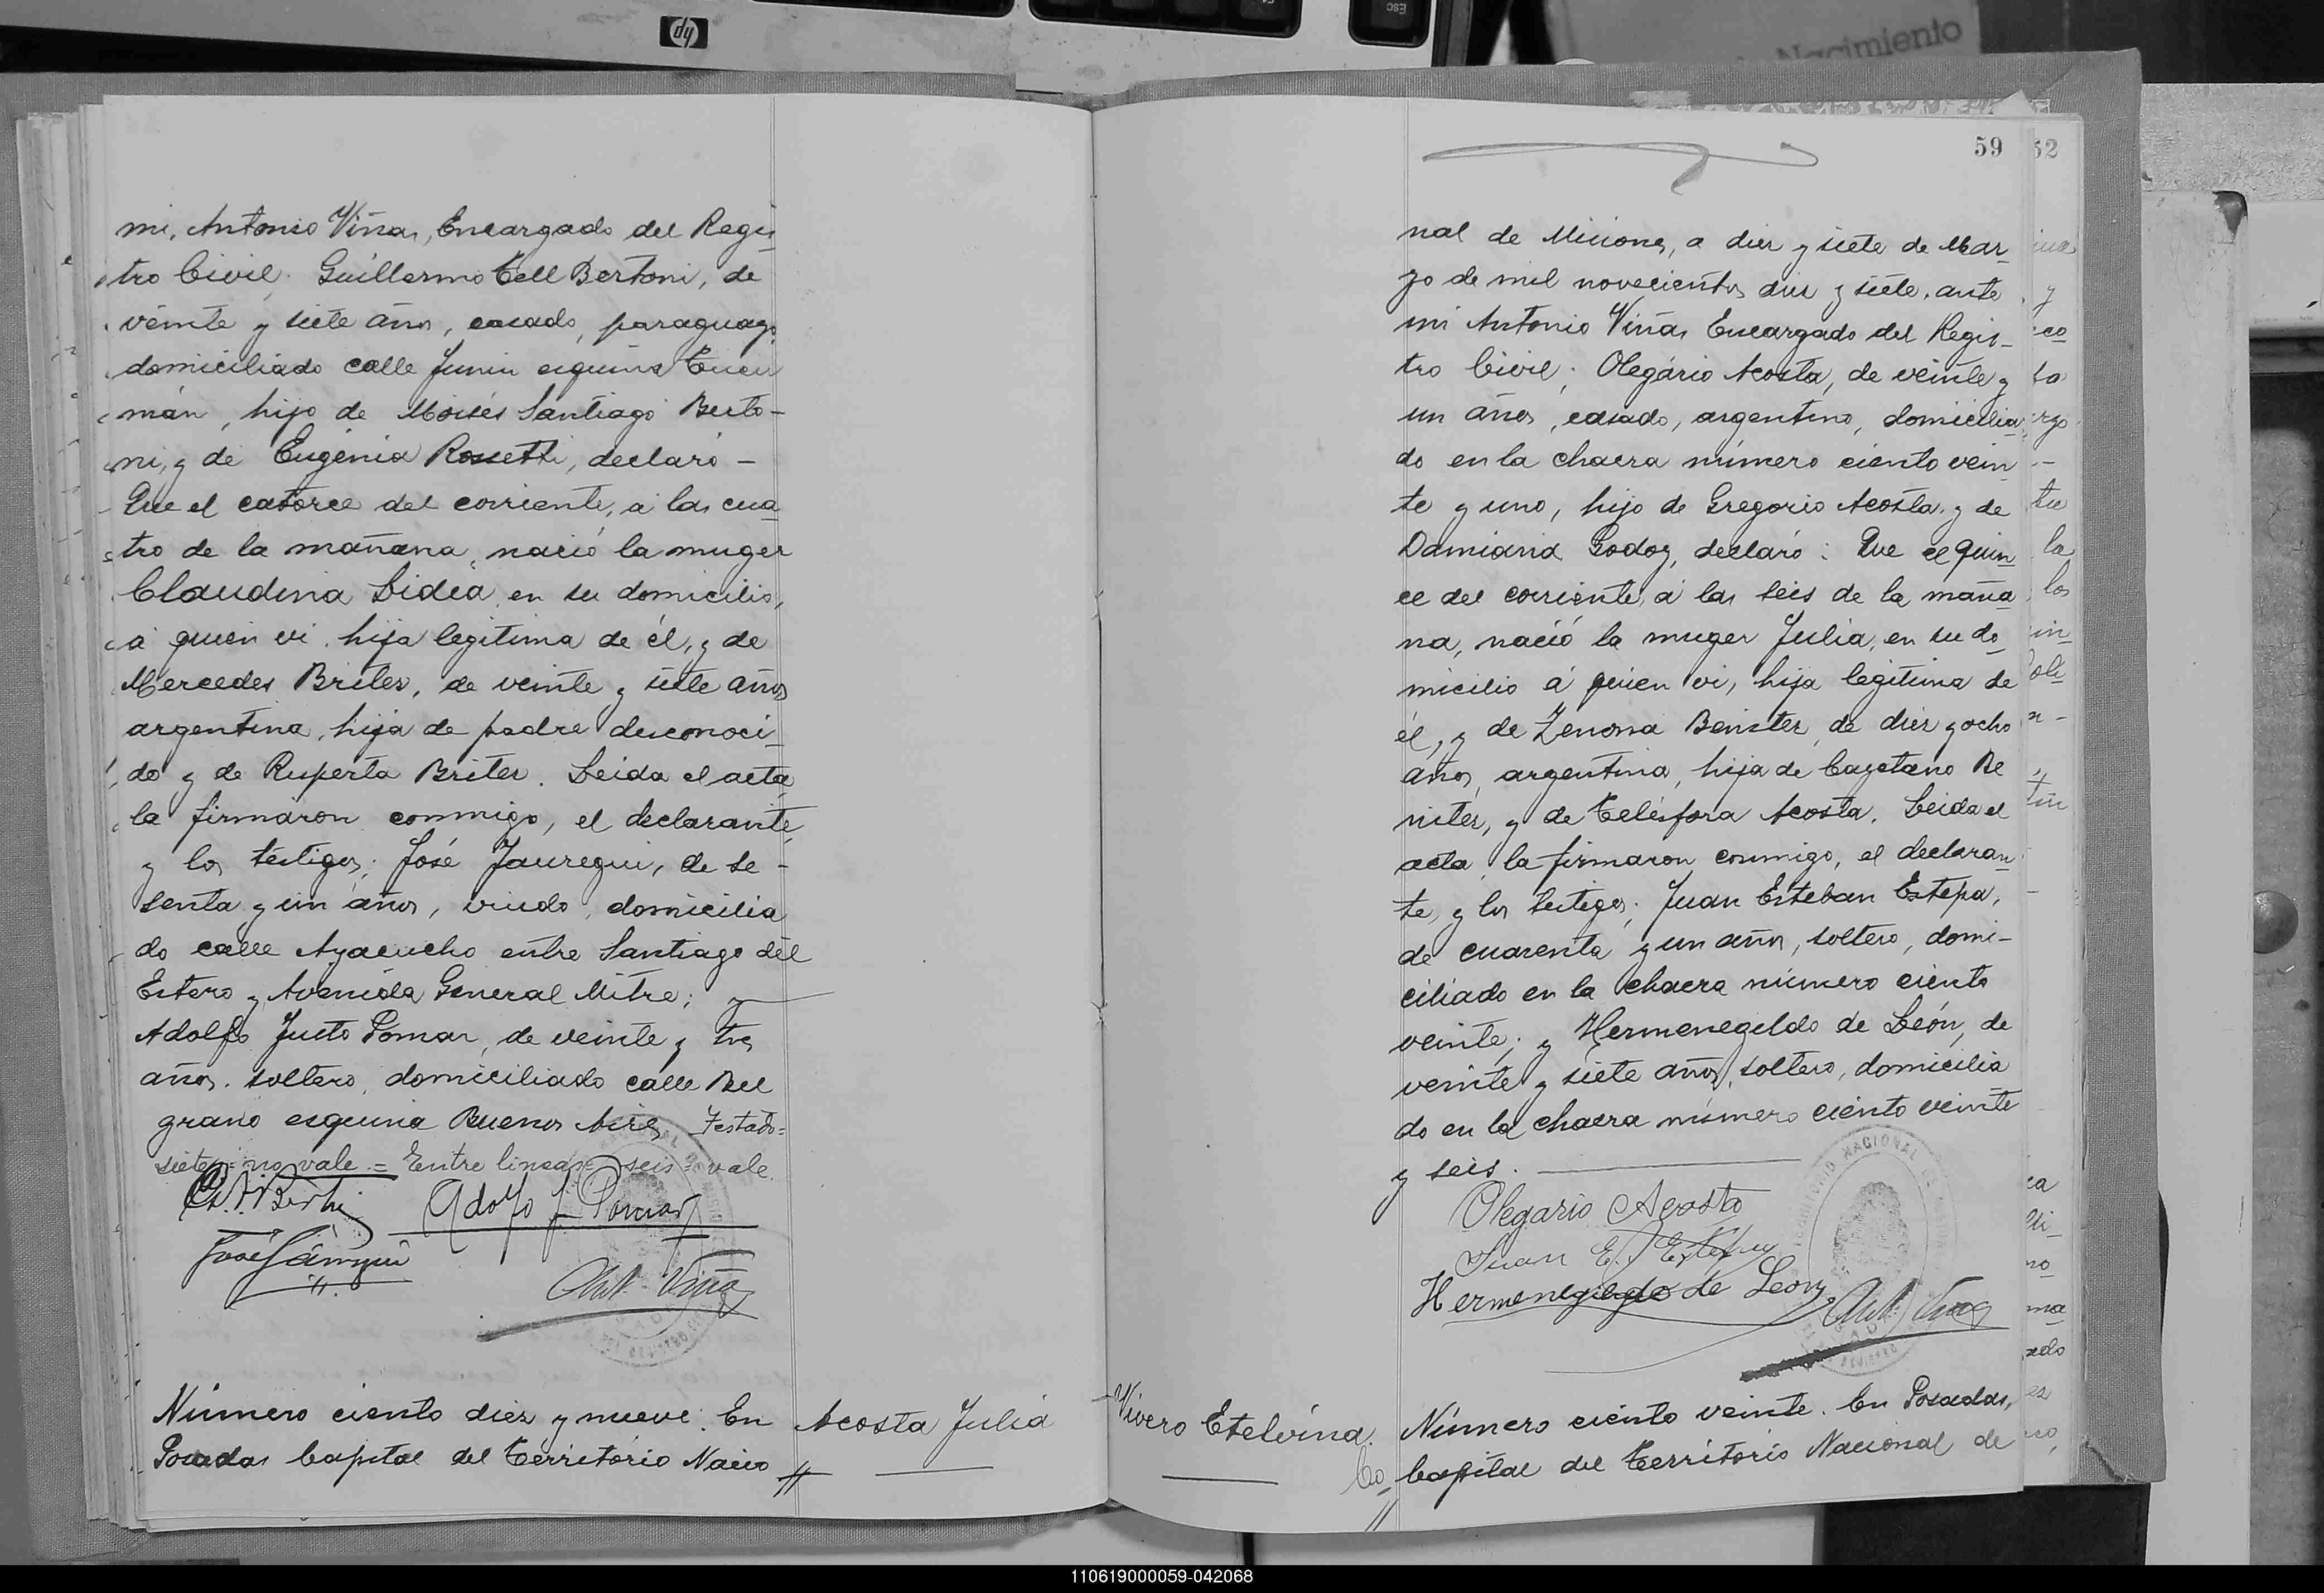 hp
Esc
Nacimiento
mi, Antonio Viñas, Encargado del Regis
tro Civil; Guillermo Tell Bertoni, de
veinte y siete años, casado, paraguayo,
domiciliado calle Junin esquina Tucu
mán, hijo de Moisés Santiago Berto-
ni, y de Eugénia Rossetti, declaró -
Que el catorce del corriente, á las cua
tro de la mañana, nació la muger
Claudina Lidia, en su domicilio,
á quien vi, hija legitima de él, y de
Mercedes Brites, de veinte y siete años
argentina, hija de padre desconoci-
do y de Ruperta Brites. Leida el acta
la firmaron conmigo, el declarante,
y los testigos; José Jauregui, de se-
senta y un años, viudo, domicilia
do calle Ayacucho entre Santiago del
Estero y Avenida General Mitre; y
Adolfo Justo Pomar, de veinte y tres
años, soltero, domiciliado calle Bel
grano esquina Buenos Aires Testado=
siete= no vale = Entre lineas= seis= vale.
Adolfo J. Pomar
José Jáuregui
Ant. Viñas
Número ciento diez y nueve. En
Posadas Capital del Territorio Nacio
Acosta Julia
59
52
nal de Misiones, a diez y siete de Mar-
zo de mil novecientos diez y siete, ante
mi Antonio Viñas Encargado del Regis-
tro Civil; Olegário Acosta, de veinte y
un años, casado, argentino, domicilia
do en la chacra número ciento vein
te y uno, hijo de Gregorio Acosta y de
Damiana Godoy, declaró: Que el quin
ce del corriente, á las seis de la maña
na, nació la muger Julia, en su do
micilio á quien vi, hija legitima de
él, y de Zenona Benitez, de diez y ocho
años, argentina, hija de Cayetano Be
nitez, y de Telésfora Acosta. Leida el
acta, la firmaron conmigo, el declaran
te, y los testigos; Juan Esteban Estepa,
de cuarenta y un años, soltero, domi-
ciliado en la chacra número ciento
veinte; y Hermenegildo de León, de
veinte y siete años, soltero, domicilia
do en la chacra número ciento veinte
y seis.
Olegario Acosta
Juan E. Estepa
Hermenegildo de Leon
Ant. Viñas
Vivero Etelvina.
Número ciento veinte. En Posadas,
Capital del Territorio Nacional de
110619000059-042068